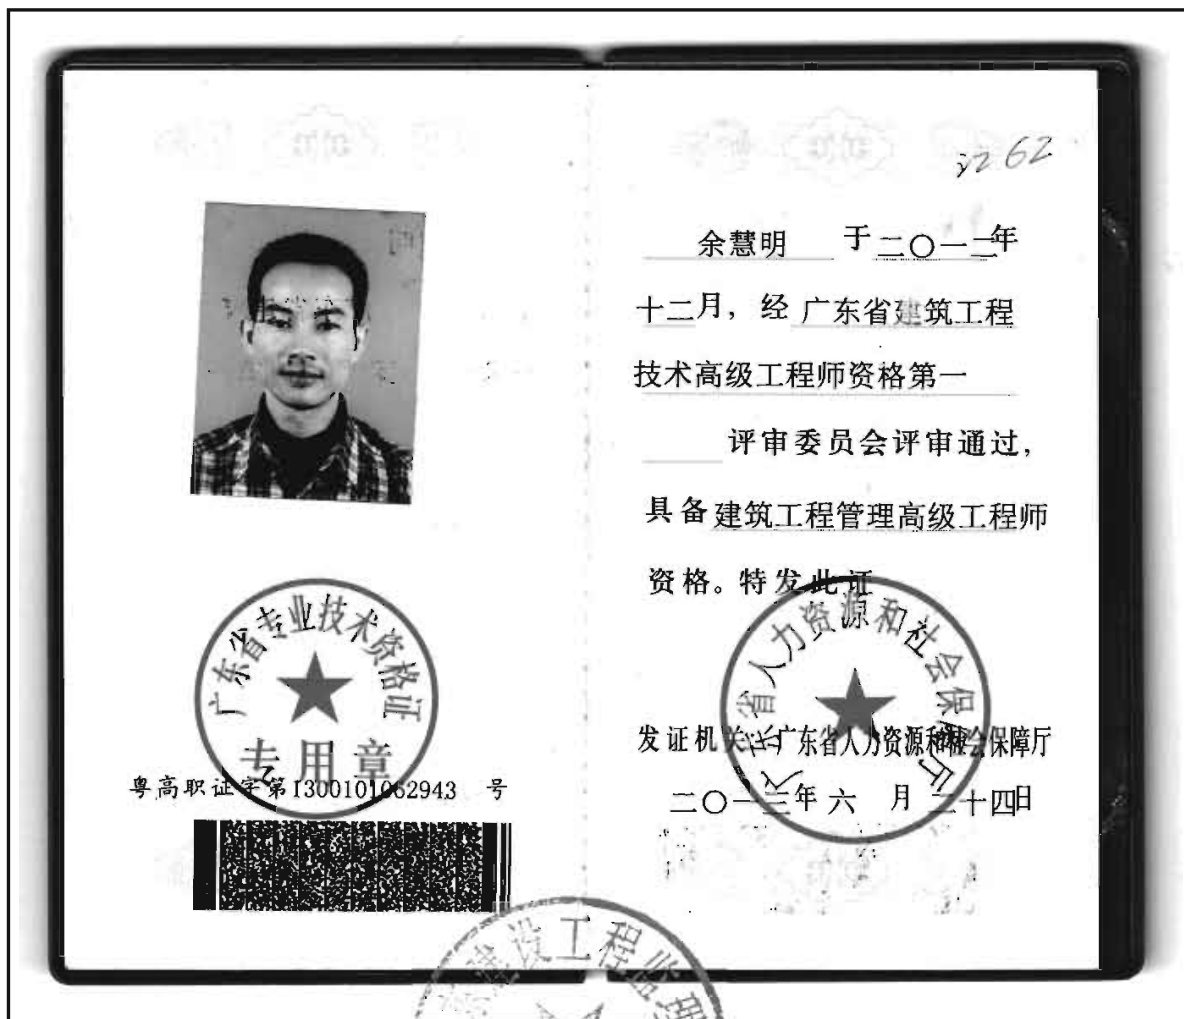 广东省专业技术资格证
专用章
粤高职证字第1300101062943 号
3262
余慧明 于二〇一二年
十二月，经广东省建筑工程
技术高级工程师资格第一
评审委员会评审通过，
具备建筑工程管理高级工程师
资格。特发此证
广东省人力资源和社会保障厅
发证机关：广东省人力资源和社会保障厅
二〇一三年六 月二十四日
建设工程监理